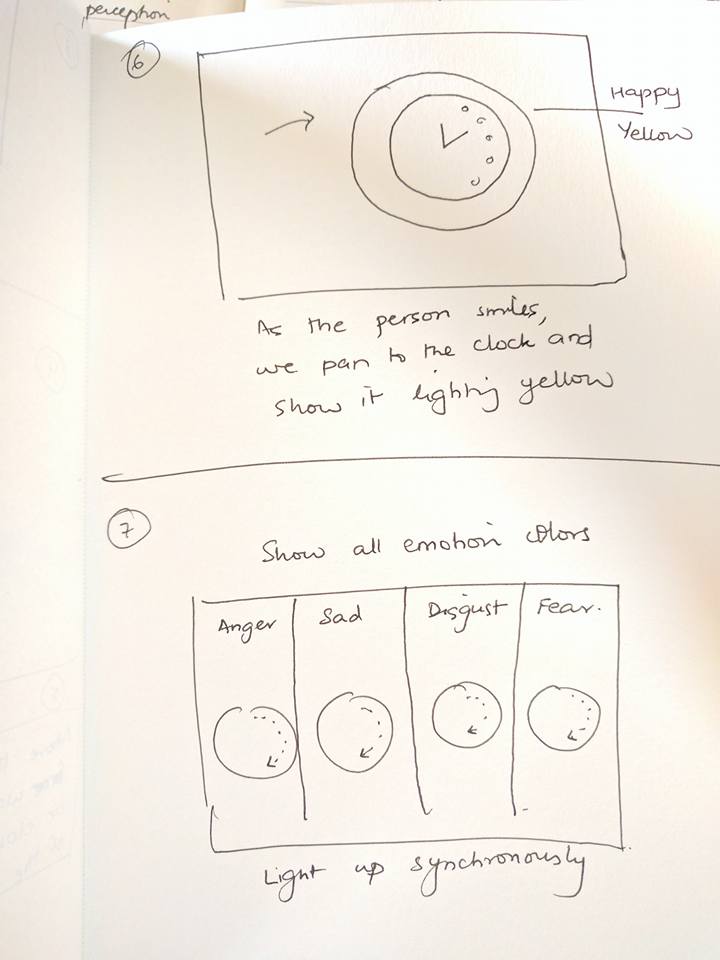 perception
6
Happy
Yellow
As the person smiles,
we pan to the clock and
show it lighting yellow
7
Show all emotion colors
Anger Sad Disgust Fear.
Light up synchronously